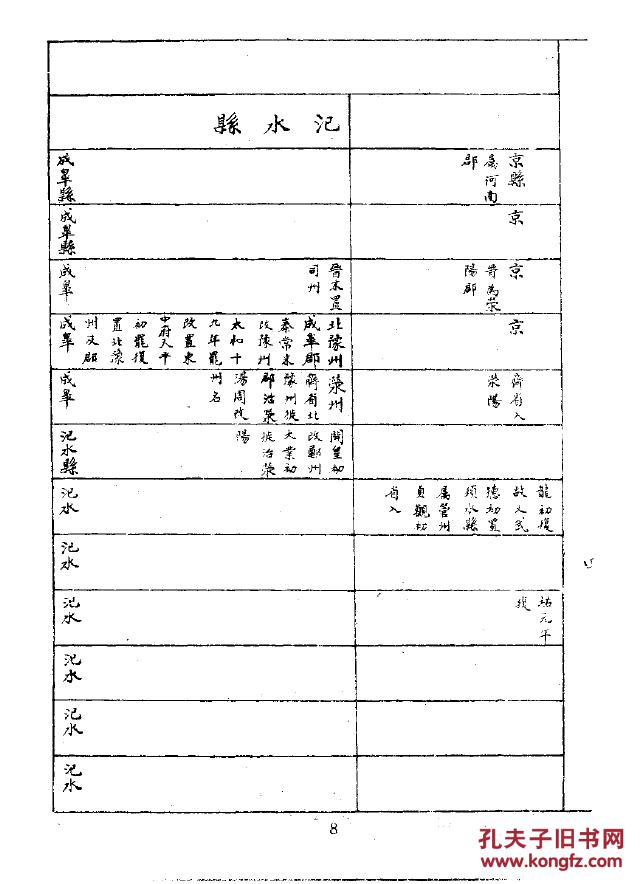 汜水縣
京縣
屬河南
郡
成皋縣
京
成皋縣
京
晉為滎
陽郡
晉末置
司州
成皋
京
北豫州
成皋郡
泰常末
改豫州
太和十
九年罷
改置東
中府天平
初罷復
置北豫
州及郡
成皋
齊省入
滎陽
滎州
齊省北
豫州徙
郡治滎
陽周改
州名
成皋
開皇初
改鄭州
大業初
徙治滎
陽
汜水縣
龍初復
故又武
德初置
須水縣
屬管州
貞觀初
省入
汜水
汜水
祐元年
復
汜水
汜水
汜水
汜水
8
孔夫子旧书网
www.kongfz.com